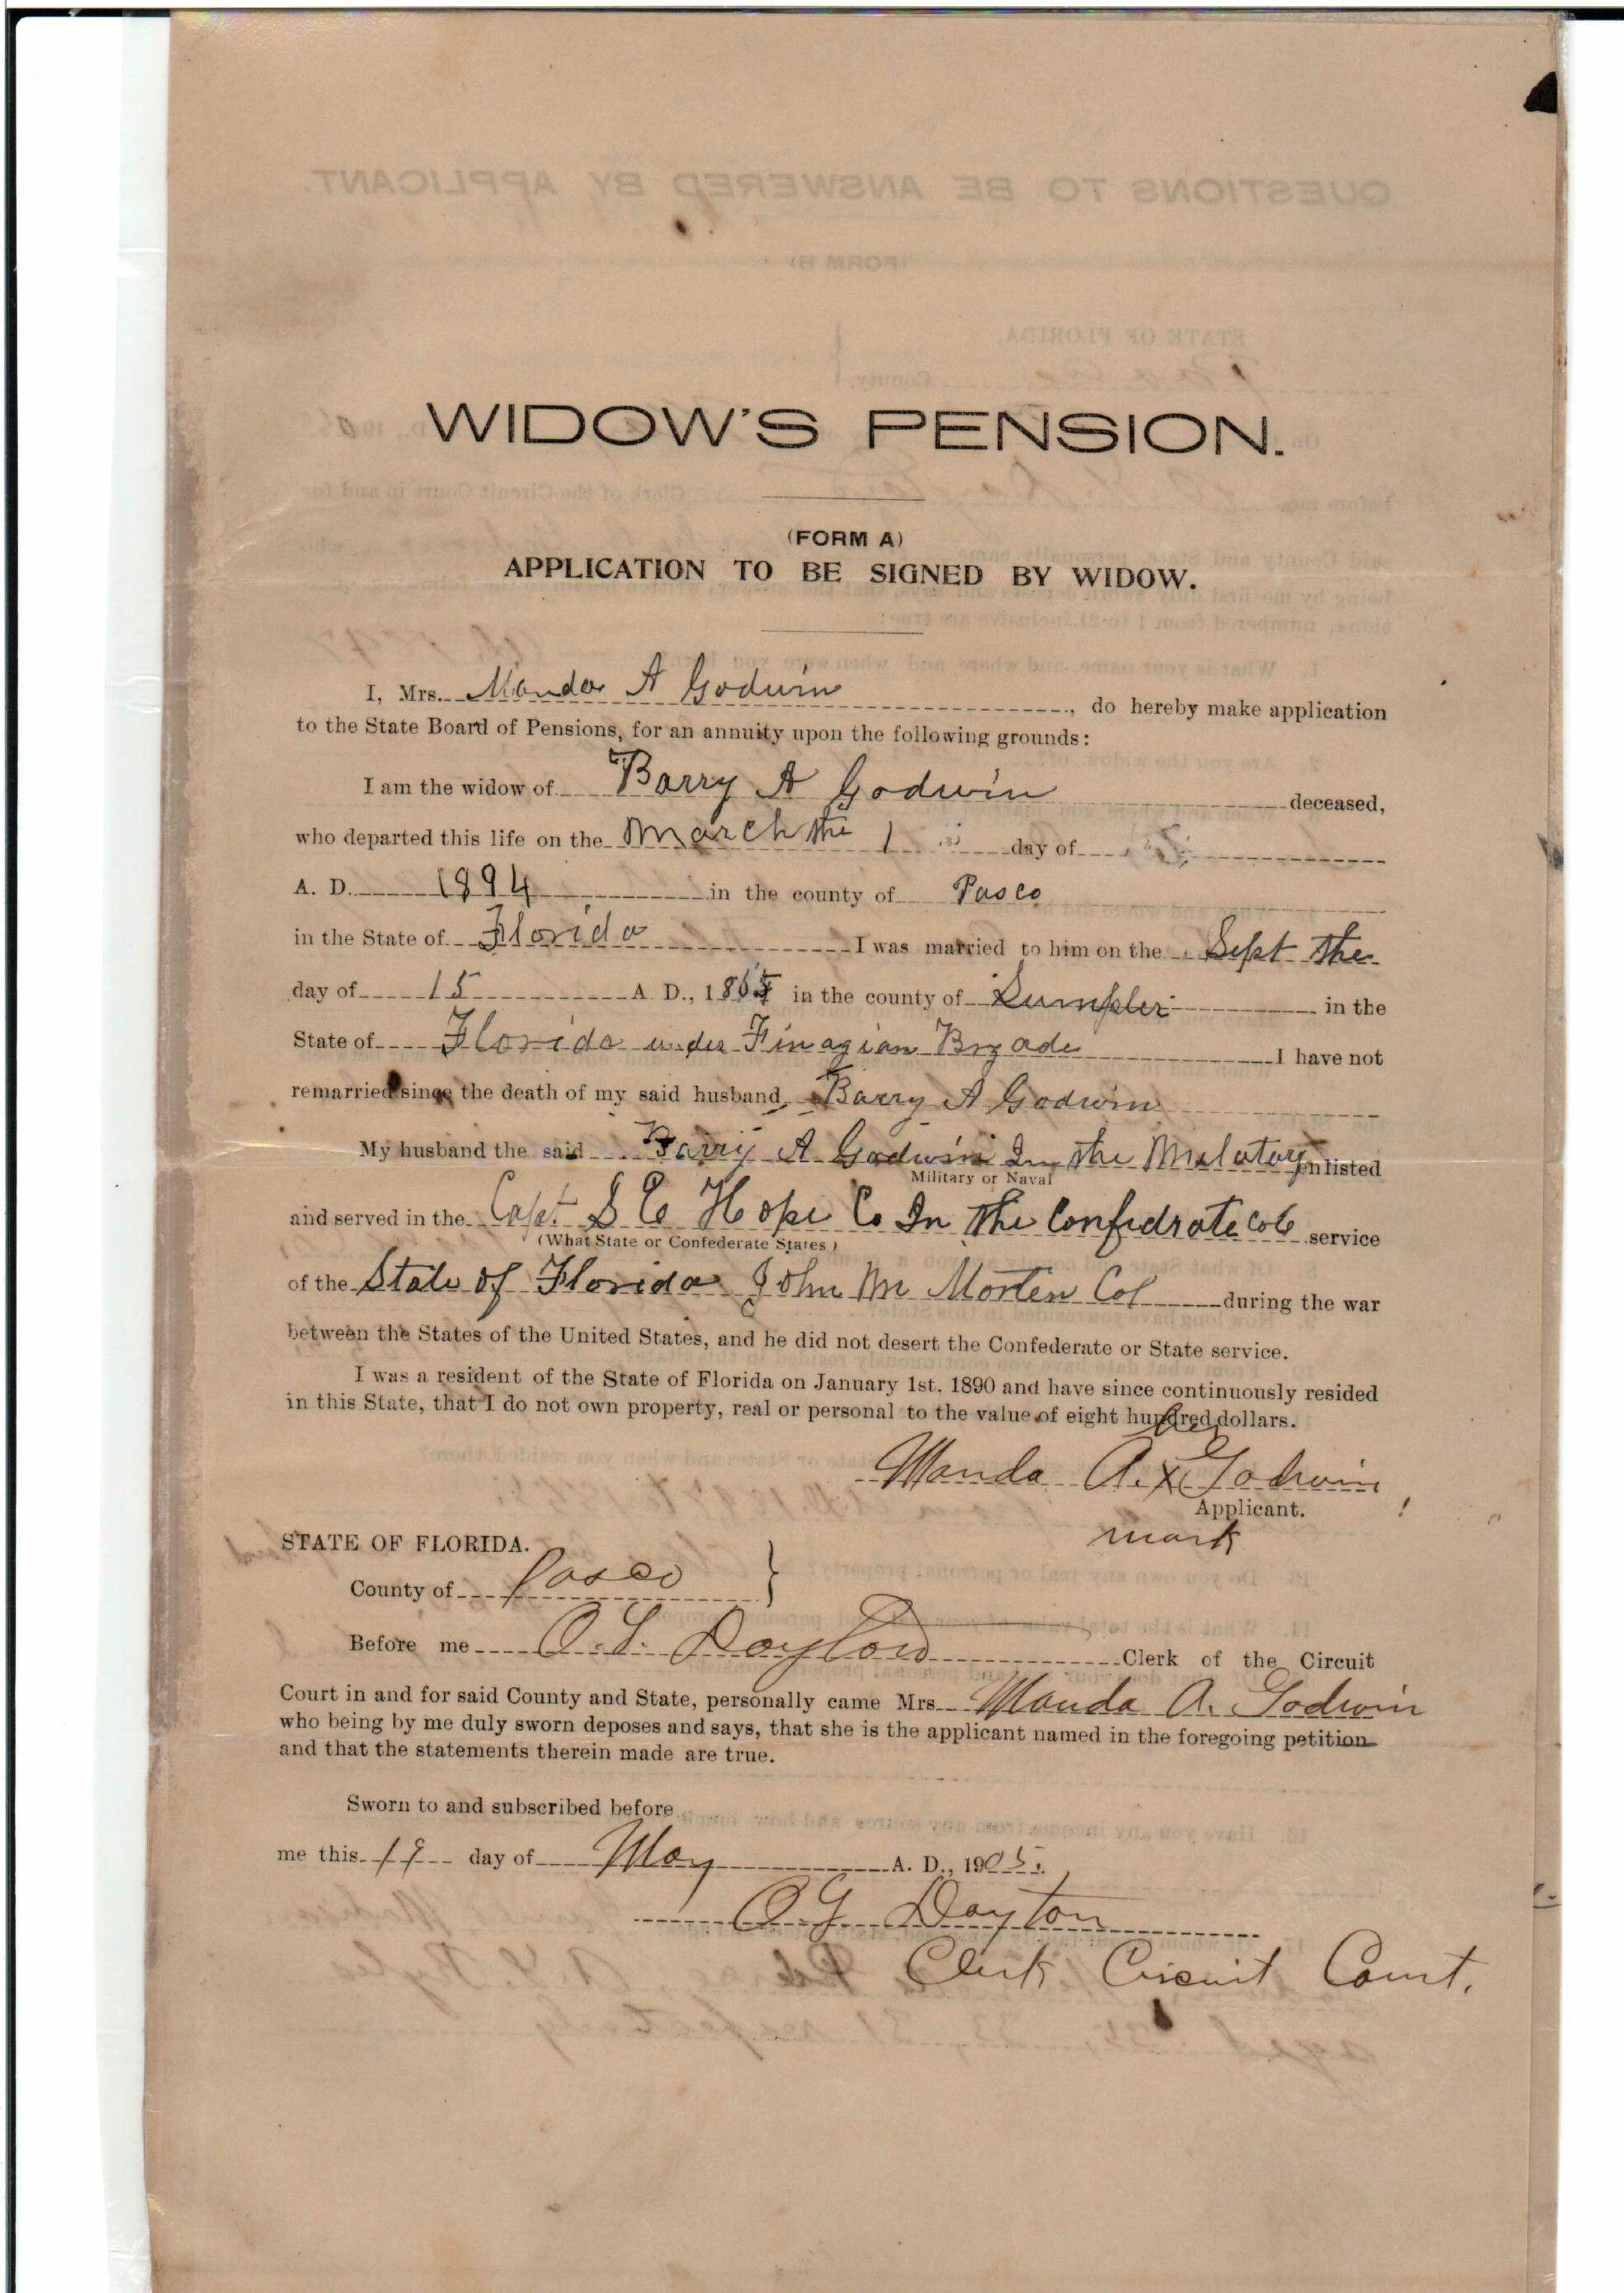 WIDOW'S PENSION.
(FORM A)
APPLICATION TO BE SIGNED BY WIDOW.
I, Mrs. Manda A Godwin, do hereby make application
to the State Board of Pensions, for an annuity upon the following grounds:
I am the widow of Barry A Godwin deceased,
who departed this life on the March the 1 day of
A. D. 1894 in the county of Pasco
in the State of Florida I was married to him on the Sept the
day of 15 A D., 186 in the county of Sumpter in the
State of Florida under Finagian Brgade I have not
remarried since the death of my said husband, Barry A Godwin
My husband the said Barry A Godwin In the Melutary enlisted
Military or Naval
and served in the Capt S E Hope Co In the Confedrate service
(What State or Confederate States)
of the State of Florida John M Morten Col during the war
between the States of the United States, and he did not desert the Confederate or State service.
I was a resident of the State of Florida on January 1st, 1890 and have since continuously resided
in this State, that I do not own property, real or personal to the value of eight hundred dollars.
her
Manda A. X Godwin
Applicant.
mark
STATE OF FLORIDA.
County of Pasco }
Before me O. G. Dayton Clerk of the Circuit
Court in and for said County and State, personally came Mrs Manda A. Godwin
who being by me duly sworn deposes and says, that she is the applicant named in the foregoing petition
and that the statements therein made are true.
Sworn to and subscribed before
me this 19 day of May A. D., 1905.
O G Dayton
Clerk Circuit Court.